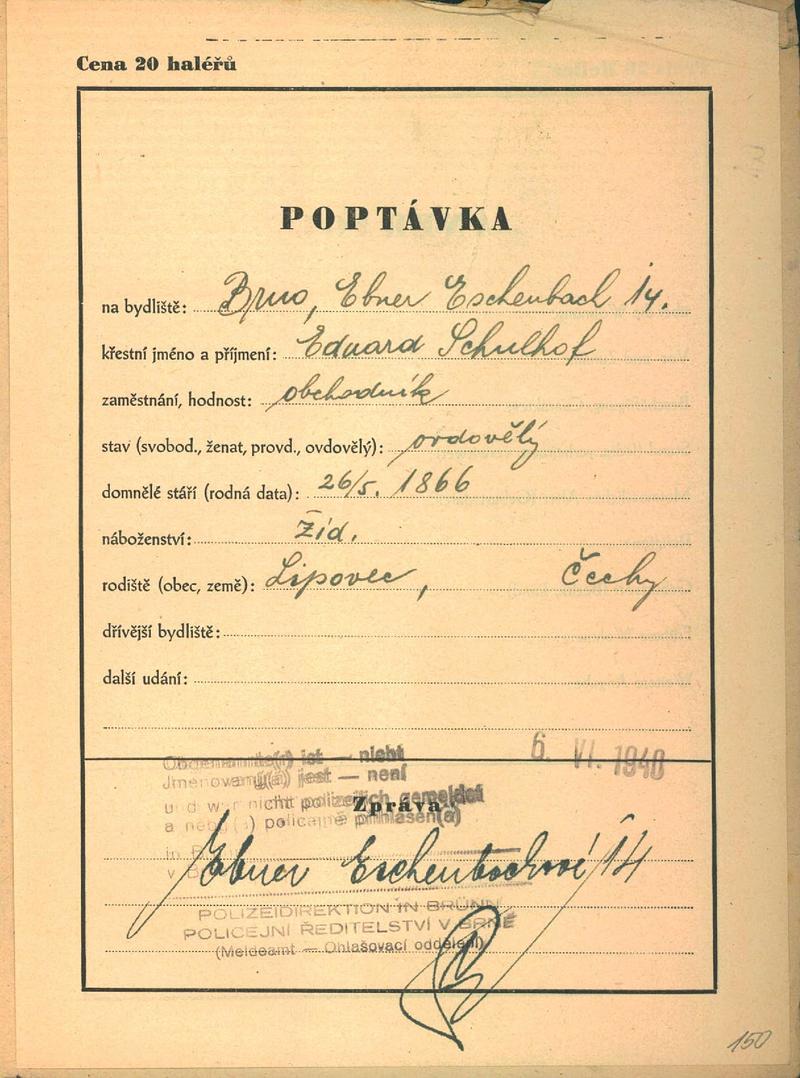 Cena 20 haléřů
POPTÁVKA
na bydliště: Brno, Ebner Eschenbach 14.
křestní jméno a příjmení: Eduard Schulhof
zaměstnání, hodnost: obchodník
stav (svobod., ženat, provd., ovdovělý): ovdovělý
domnělé stáří (rodná data): 26/5. 1866
náboženství: žid.
rodiště (obec, země): Lipovec, Čechy
dřívější bydliště:
další udání:
6. VI. 1940
Obgenannte(r) ist — nicht
Jmenovaný(á) jest — není
und war nicht polizeilich gemeldet
Zpráva
a neby(a) policejně přihlášen(a)
in
v
Ebner Eschenbachové 14
POLIZEIDIREKTION IN BRÜNN
POLICEJNÍ ŘEDITELSTVÍ V BRNĚ
(Meldeamt — Ohlašovací oddělení)
150